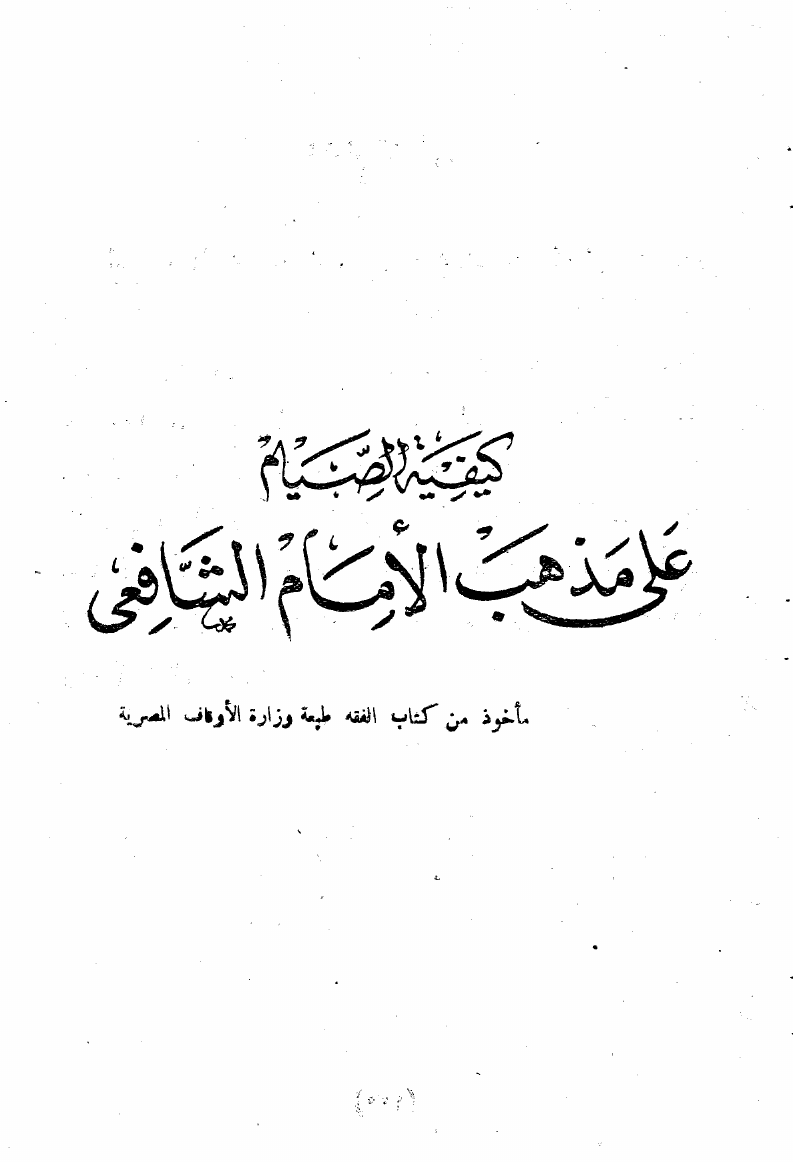 كيفية الصيام
على مذهب الإمام الشافعى
مأخوذ من كتاب الفقه طبعة وزارة الأوقاف المصرية